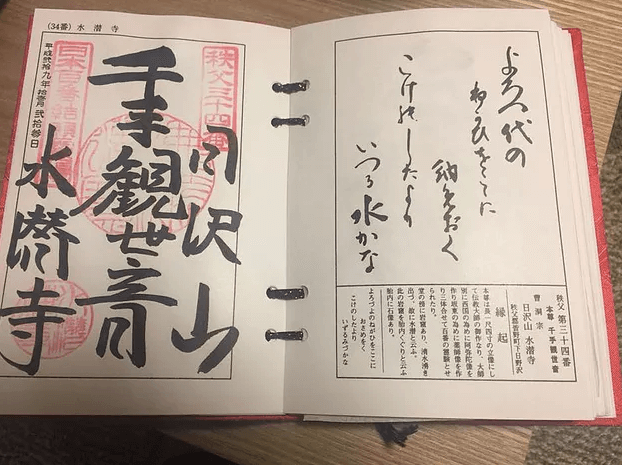 (34番) 水潜寺
平成弐拾九年拾壱月弐拾参日
秩父三十四番
日沢山
千手観世音
日本百番結願
水潜寺
よろづ代の
ねがひをここに
納めおく
こけのしたより
いづる水かな
秩父 第三十四番
本尊 千手観世音
曹洞宗
日沢山 水潜寺
秩父郡皆野町下日野沢
縁起
本尊は長一尺四寸の立像にし
て伝教大師の御作なり、大師
別に西国の為めに阿弥陀像を
作り坂東の為めに薬師像を作
り三体合せて百番の霊験とせ
られたり。
堂の傍に岩窟あり、清水湧き
出づ、故に水潜と云ふ。
此の岩窟を胎内くぐりと云ふ
胎内に石像あり。
よろづよのねがひをここに
おさめおく
こけのしたより
いずるみづかな